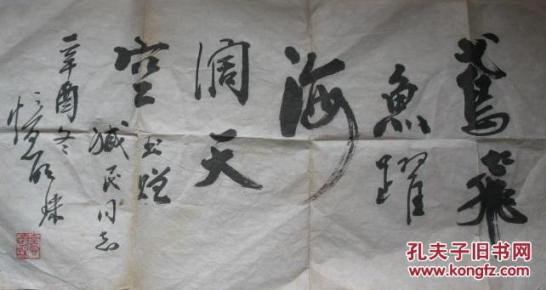 鸢飞
鱼跃
海
阔天
空
书赠
缄民同志
辛酉冬
孔夫子旧书网
www.kongfz.com